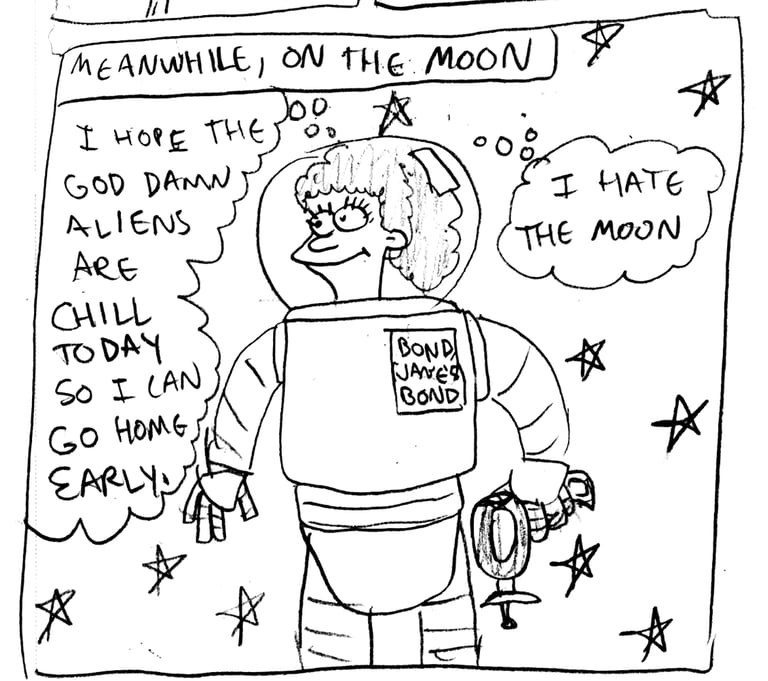 MEANWHILE, ON THE MOON
I HOPE THE
GOD DAMN
ALIENS
ARE
CHILL
TODAY
SO I CAN
GO HOME
EARLY.
I HATE
THE MOON
BOND,
JAMES
BOND